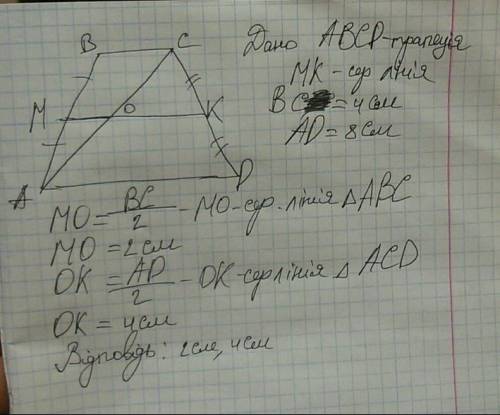 B C
Дано ABCD-трапеція
MK - сер лінія
M O K
BC = 4см
AD = 8см
A D
MO = BC/2 - MO-сер. лінія △ ABC
MO = 2см
OK = AD/2 - OK-сер лінія △ ACD
OK = 4см
Відповідь: 2см, 4см